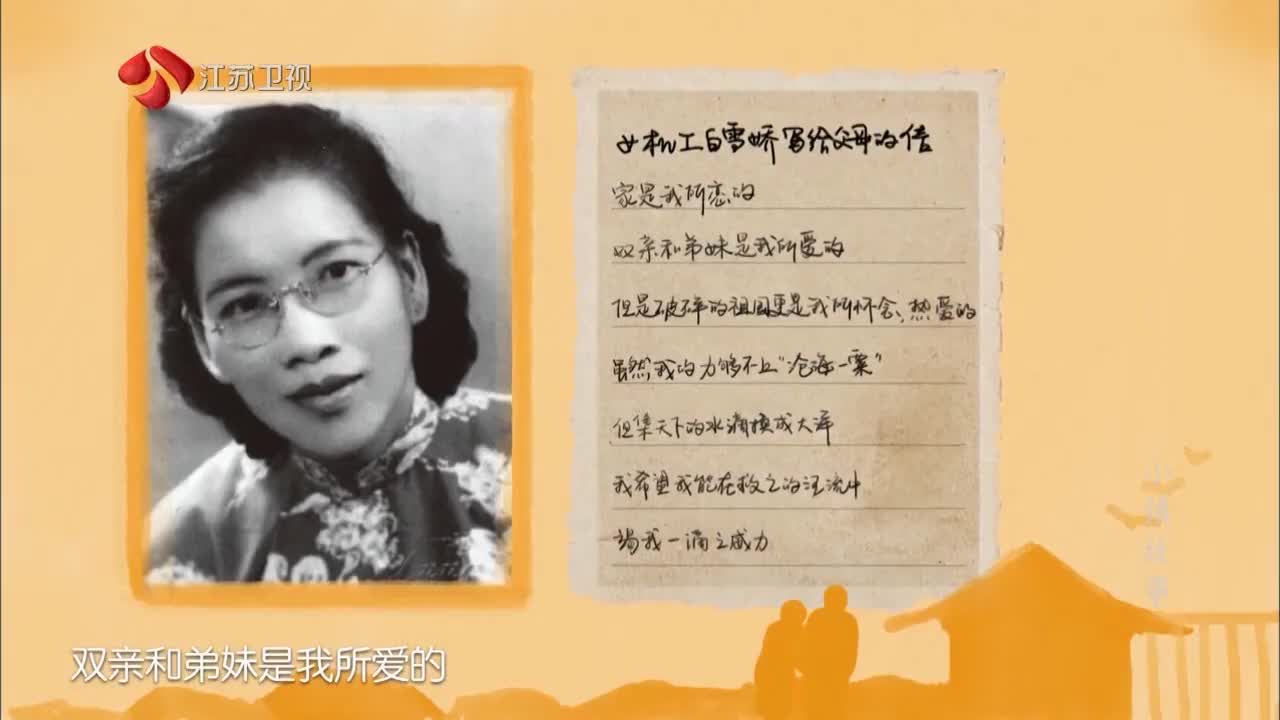 江苏卫视
女机工白雪娇写给父母的信
家是我所恋的
双亲和弟妹是我所爱的
但是破碎的祖国更是我所怀念、热爱的
虽然我的力够不上“沧海一粟”
但集天下的水滴换成大洋
我希望我能在救亡的汪流中
竭我一滴之威力
双亲和弟妹是我所爱的